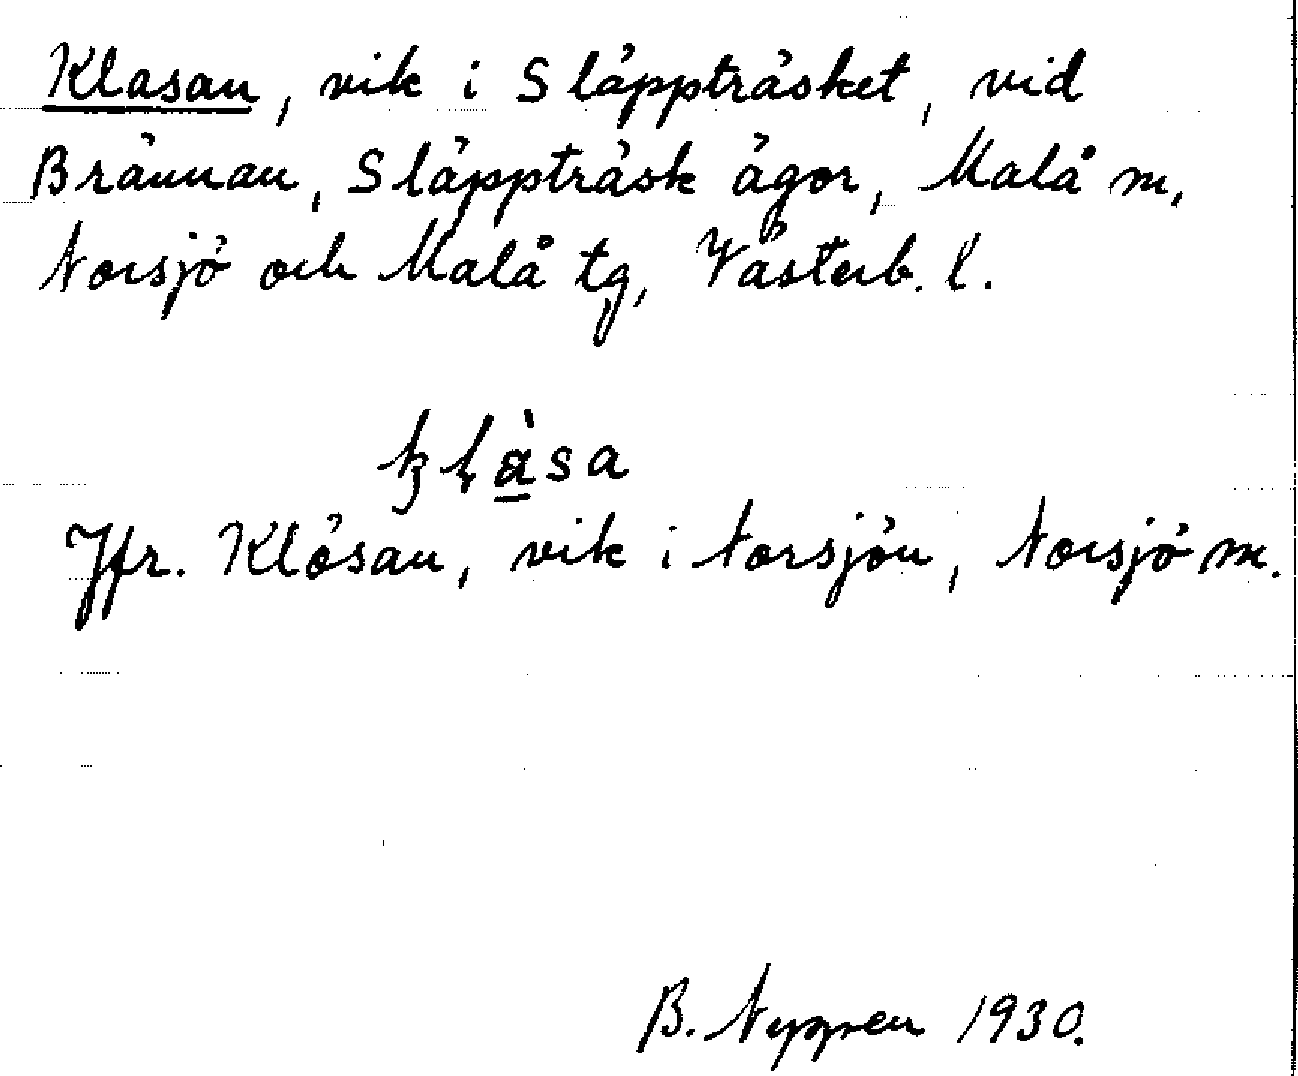 Klasan, vik i Släppträsket, vid
Brännan, Släppträsk ägor, Malå m,
Norsjö och Malå tg, Västerb. l.
klàsa
Jfr. Klösan, vik i Norsjön, Norsjö m.
B. Nyppen 1930.